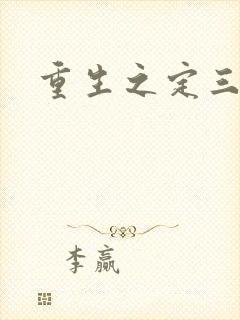 重生之定三
李赢